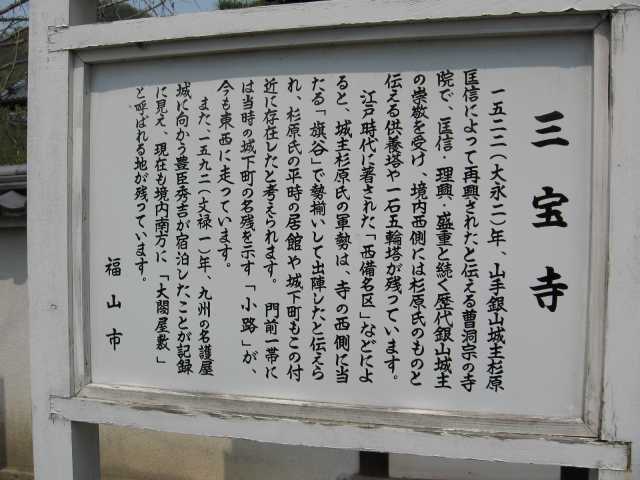 三宝寺
一五二二(大永二)年、山手銀山城主杉原
匡信によって再興されたと伝える曹洞宗の寺
院で、匡信・理興・盛重と続く歴代銀山城主
の崇敬を受け、境内西側には杉原氏のものと
伝える供養塔や一石五輪塔が残っています。
江戸時代に著された「西備名区」などによ
ると、城主杉原氏の軍勢は、寺の西側に当
たる「旗谷」で勢揃いして出陣したと伝えら
れ、杉原氏の平時の居館や城下町もこの付
近に存在したと考えられます。門前一帯に
は当時の城下町の名残を示す「小路」が、
今も東西に走っています。
また、一五九二(文禄一)年、九州の名護屋
城に向かう豊臣秀吉が宿泊したことが記録
に見え、現在も境内南方に「大閤屋敷」
と呼ばれる地が残っています。
福山市